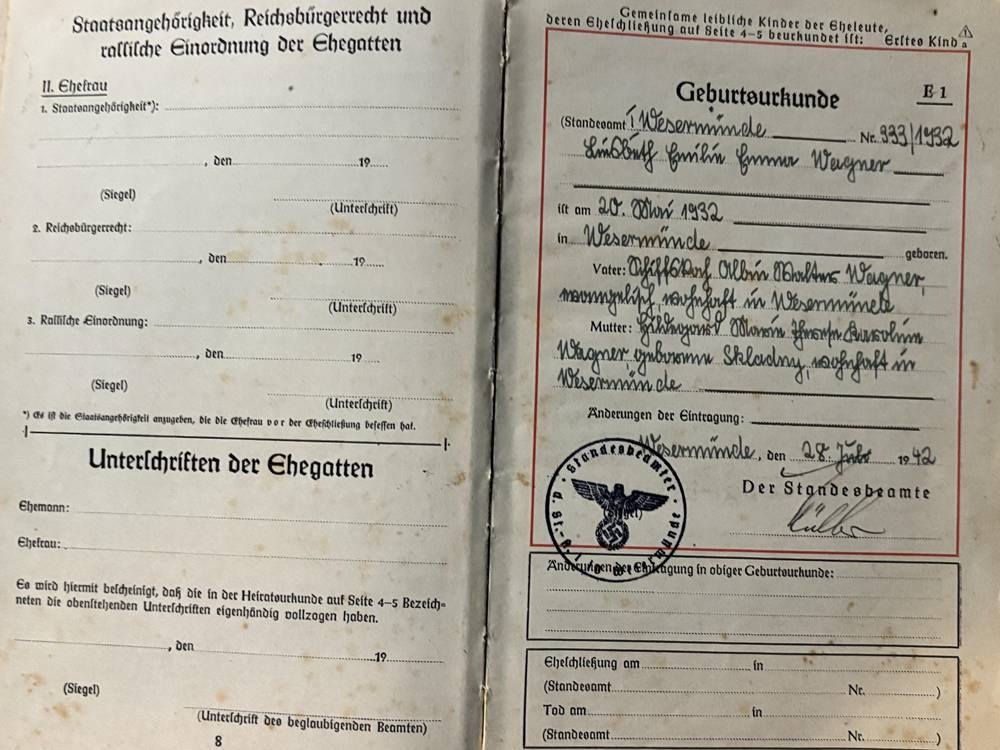 Staatsangehörigkeit, Reichsbürgerrecht und
rassische Einordnung der Ehegatten
II. Ehefrau
1. Staatsangehörigkeit*):
, den 19
(Siegel)
(Unterschrift)
2. Reichsbürgerrecht:
, den 19
(Siegel)
(Unterschrift)
3. Rassische Einordnung:
, den 19
(Siegel)
(Unterschrift)
*) Es ist die Staatsangehörigkeit anzugeben, die die Ehefrau vor der Eheschließung besessen hat.
Unterschriften der Ehegatten
Ehemann:
Ehefrau:
Es wird hiermit bescheinigt, daß die in der Heiratsurkunde auf Seite 4–5 Bezeich-
neten die obenstehenden Unterschriften eigenhändig vollzogen haben.
, den 19
(Siegel)
(Unterschrift des beglaubigenden Beamten)
8
Gemeinsame leibliche Kinder der Eheleute,
deren Eheschließung auf Seite 4–5 beurkundet ist: Erstes Kind
Geburtsurkunde E 1
(Standesamt I Wesermünde Nr. 333/1932
Lisbeth Emilie Emma Wagner
ist am 20. Mai 1932
in Wesermünde geboren.
Vater: Schiffskoch Albin Wagner,
evangelisch, wohnhaft in Wesermünde
Mutter: Hildegard Marie Karoline
Wagner, geborene Skladny, wohnhaft in
Wesermünde
Änderungen der Eintragung:
Wesermünde, den 28. 1942
Der Standesbeamte
Standesbeamter
Wesermünde
(Siegel)
Änderungen der Eintragung in obiger Geburtsurkunde:
Eheschließung am in
(Standesamt Nr. )
Tod am in
(Standesamt Nr. )